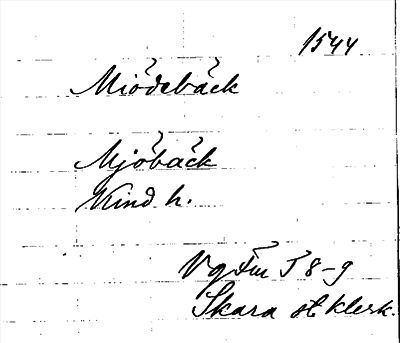 1544
Miödebäck
Mjöbäck
Kind h.
Vg Fm I 8-9
Skara st klerk.